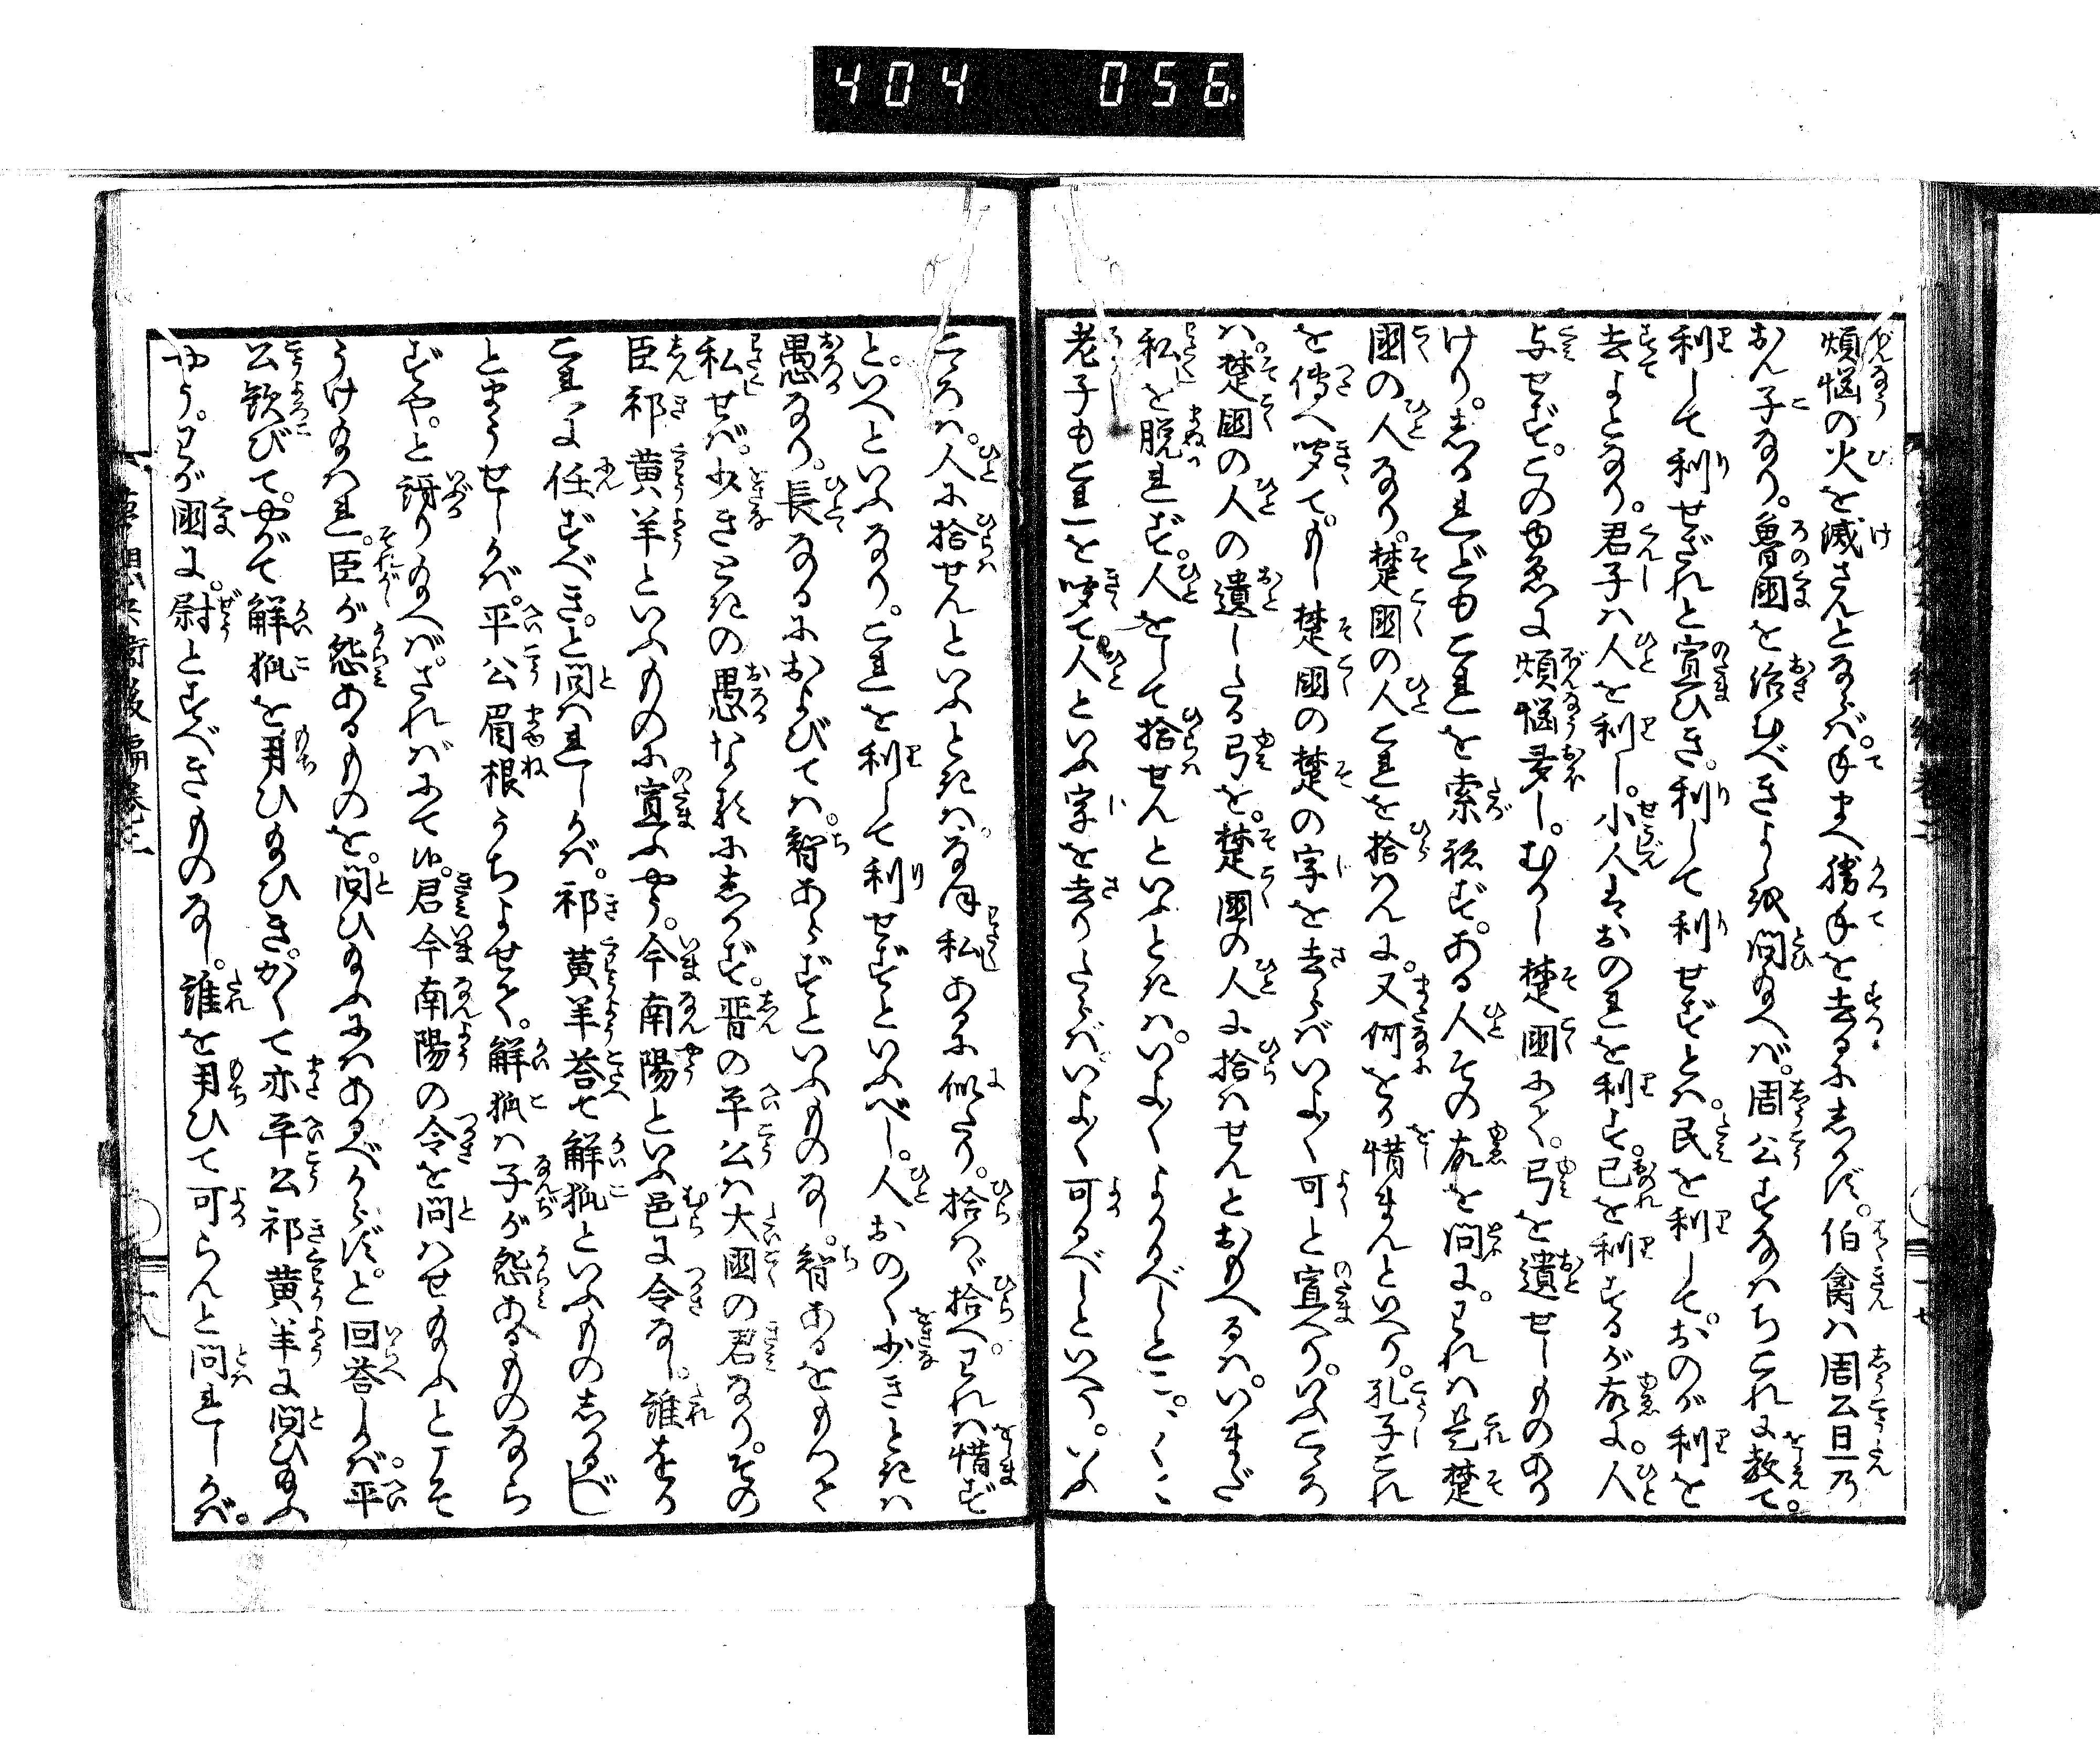 404 056
煩悩の火を滅さんとならば。手まへ勝手を去るにしかず。伯禽は周公旦乃
おん子なり。魯国を治むべきよしを問給へば。周公すなはちこれに教て。
利して利せざれと宣ひき。利して利せずとは。民を利して。おのが利を
去よとなり。君子ハ人を利し。小人はおのれを利す。己を利するが故に。人
与せず。このゆゑに煩悩多し。むかし楚国にて。弓を遺せしものあり
けり。しかれどもこれを索ねず。ある人その故を問に。われハ是楚
国の人なり。楚国の人これを拾はんに。又何をか惜まんといへり。孔子これ
を傳へ聞て。もし楚国の楚の字を去らばいよ〳〵可と宣へり。いふこころ
ハ。楚国の人の遺したる弓を。楚国の人に拾ハせんとおもへるハ。いまだ
私を脱れず。人をして拾せんといふときハ。いよ〳〵よかるべしとこゝ
老子もこれを聞て。人といふ字を去りたらばいよ〳〵可るべしといへり。いふ
こころハ。人に拾せんといふときハ。なほ私あるに似たり。拾はゞ拾へ。われハ惜ず
と。いへといふなり。これを利して利せずといふべし。人おの〳〵少きときハ
愚なり。長なるにおよびてハ。智あらずといふものなし。智あるをもつて
私せば。少きときの愚な〻にしかず。晋の平公ハ大国の君なり。その
臣祁黄羊といふものに宣ふやう。今南陽といふ邑に令なし。誰をか
これに任ずべき。と問はれしかば。祁黄羊荅て解狐といふものしかるべし
とまうせしかば。平公眉根うちよせて。解狐ハ子が怨あるものなら
ずや。と訝り給へば。さればにて候。君今南陽の令を問ハせ給ふとこそ
うけ給はれ。臣が怨あるものを。問ひ給ふにハあるべからず。と回荅しかば。平
公歓びて。やがて解狐を用ひ給ひき。かくて亦平公祁黄羊に問ひ給ふ
やう。わが国に。尉とすべきものなし。誰を用ひて可らんと問れしかば。